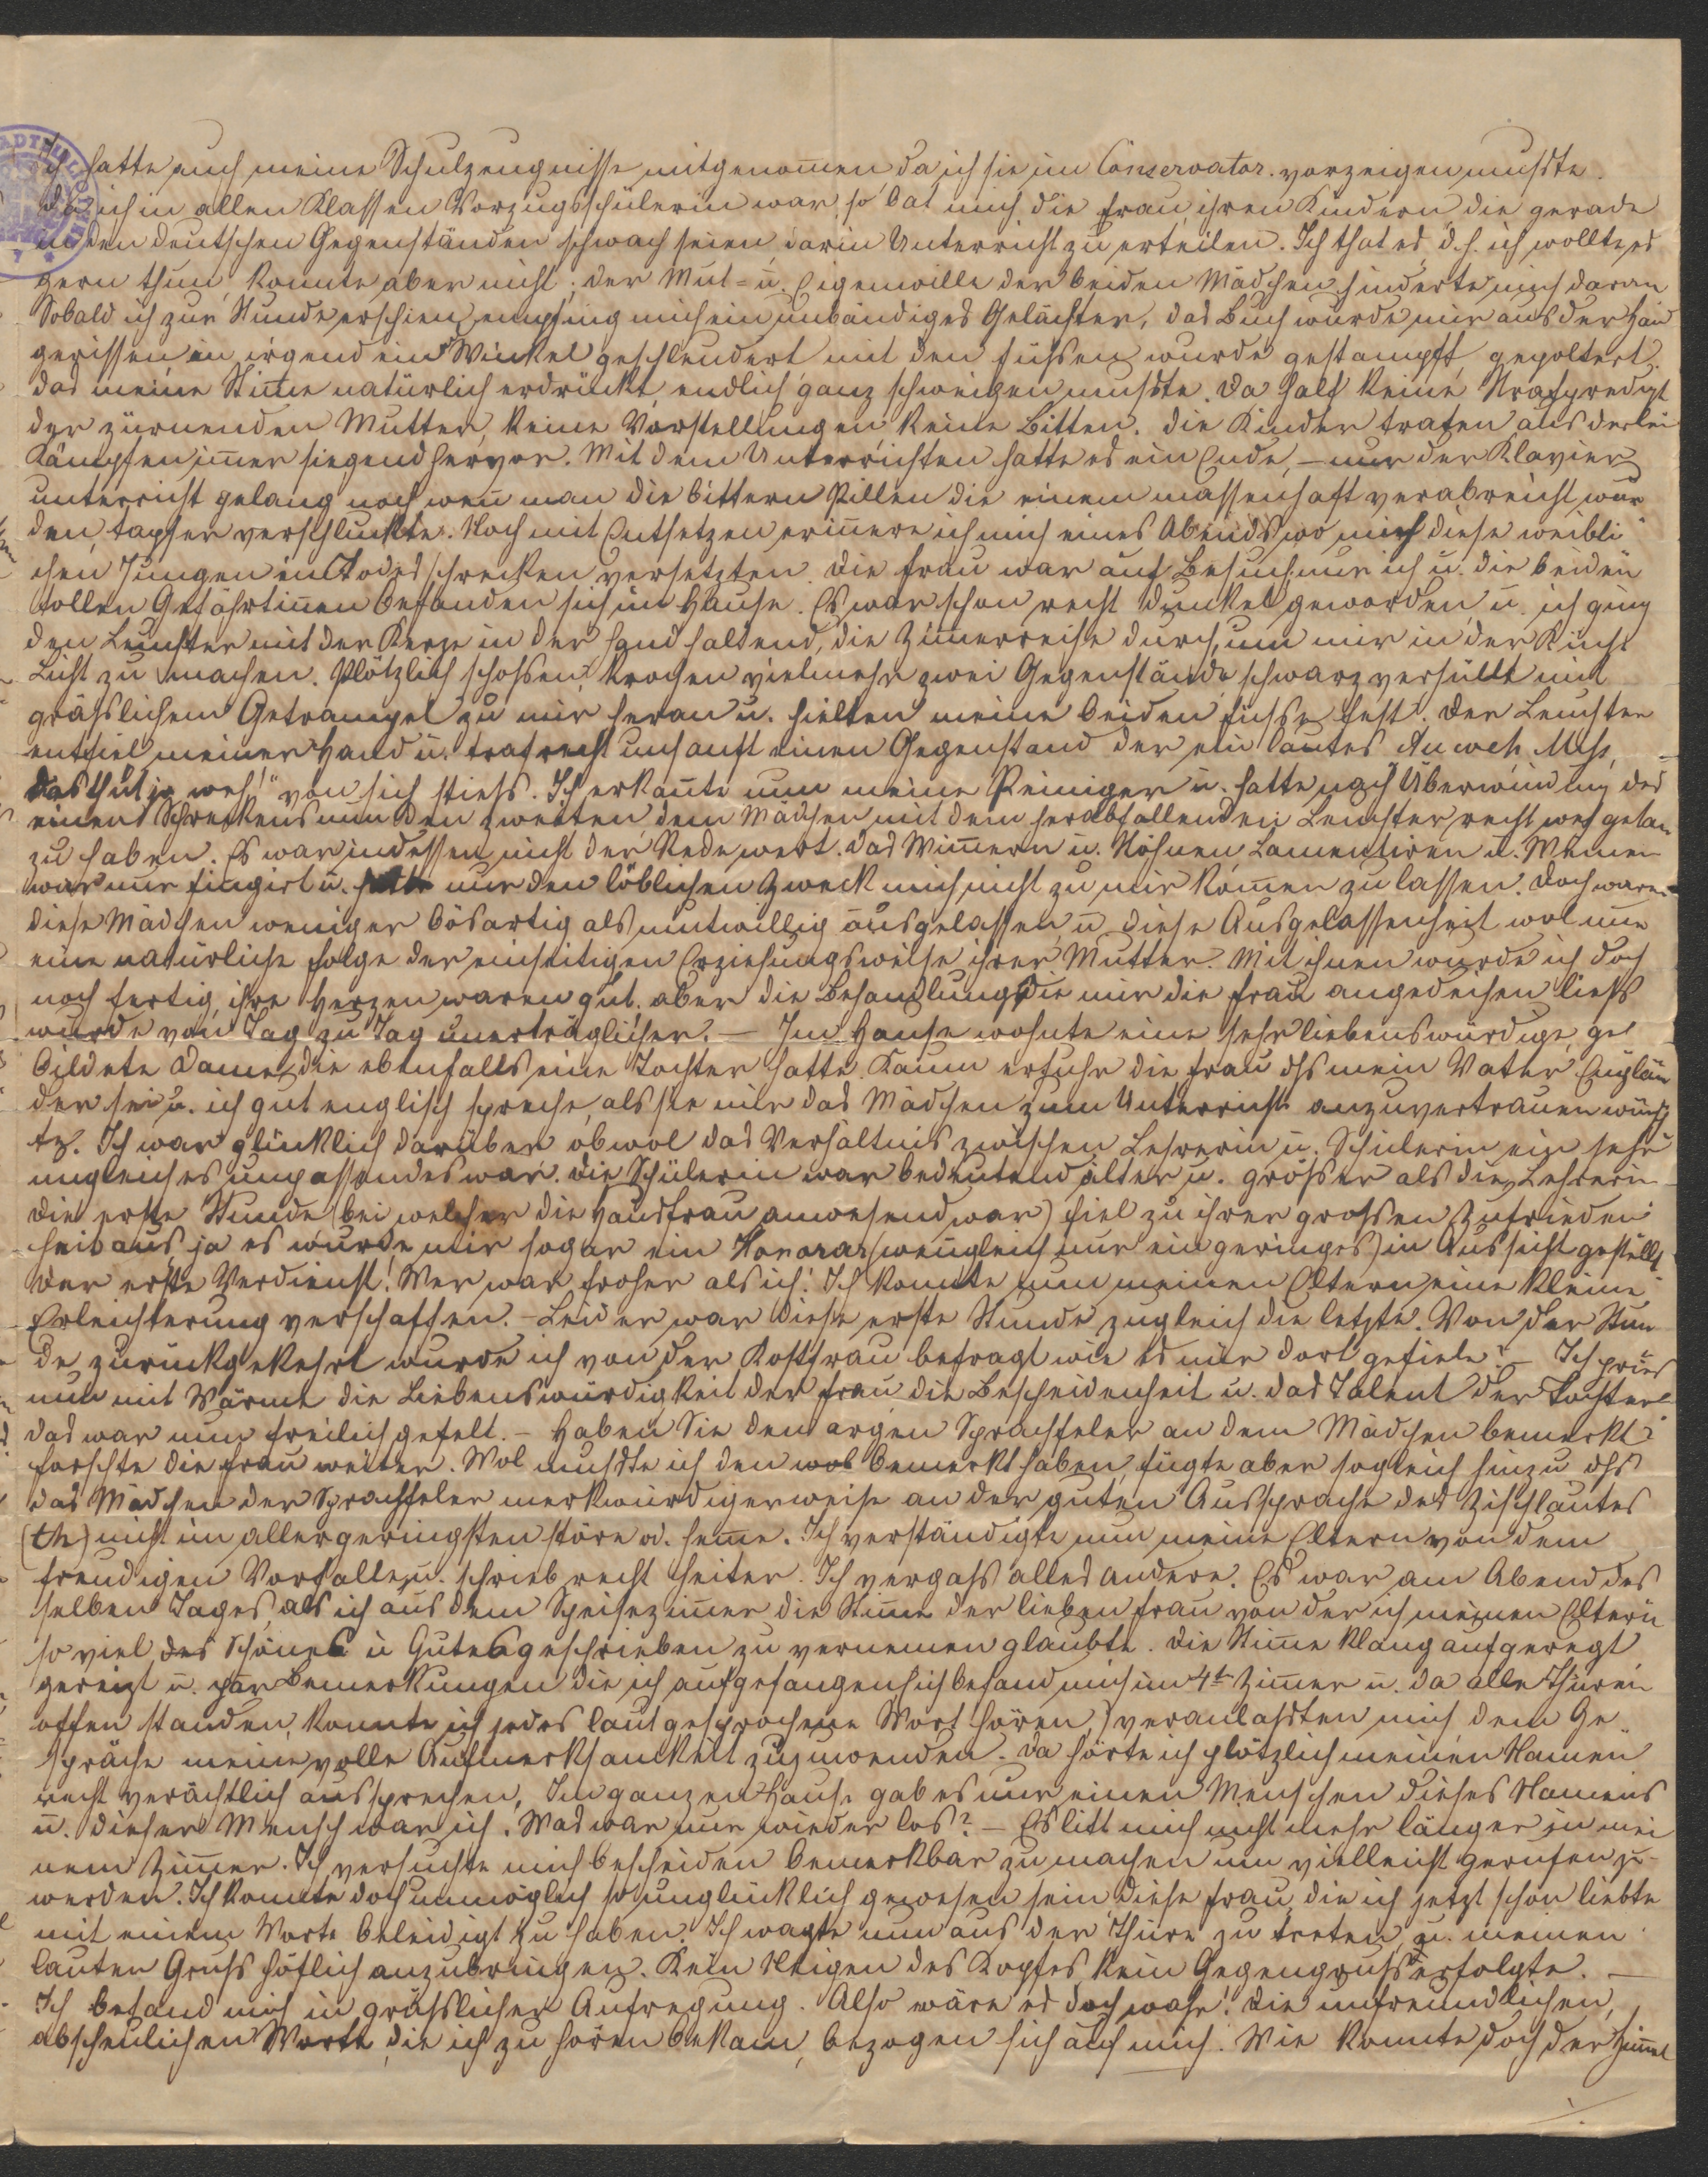 Ich hatte auch meine Schulzeugnisse mitgenom̄en da ich sie im Conservator. vorzeigen mußte.
Da ich in allen Klassen Vorzugsschülerin war, so bat mich die Frau, ihren Kindern die gerade
in den deutschen Gegenständen schwach seien, darin Unterricht zu erteilen. Ich that es, d. h. ich wollte es
gern thun, konnte aber nicht; der Mut= u. Eigenwille der beiden Mädchen hinderte mich daran
Sobald ich zur Stunde erschien, empfing mich ein unbändiges Gelächter, das Buch wurde mir aus der Han̄d
gerissen in irgend ein Winkel geschleudert mit den Füßen wurde gestampft, gepoltert.
das meine Stim̄e natürlich erdrückt, endlich ganz schweigen mußte. Da half keine Strafpredigt
der zürnenden Mutter, keine Vorstellungen keine Bitten. Die Kinder traten aus derlei
Kämpfen im̄er siegend hervor. Mit dem Unterrichten hatte es ein Ende, – nur der Klavier
unterricht gelang noch, wen̄ man die bittern Pillen die einem massenhaft verabreicht wur
den, tapfer verschluckte. Noch mit Entsetzen erin̄ere ich mich eines Abends wo mich diese weibli
chen Jungen in Todesschrecken versetzten. Die Frau war auf Besuch nur ich u. die beiden
tollen Gefährtin̄en befanden sich im Hause. Es war schon recht dunkel geworden u. ich ging
den Leuchter mit der Kerze in der Hand haltend, die Zim̄erreihe durch, um mir in der Küche
Licht zu machen. Plötzlich schoßen, krochen vielmehr zwei Gegenstände schwarz verhüllt mit
gräßlichem Getrampel zu mir heran u. hielten meine beiden Füße fest. Der Leuchter
entfiel meiner Hand u. traf recht unsanft einen Gegenstand der ein lautes Au weh,
das thut ja weh!" von sich stieß. Ich erkan̄te nun meine Peiniger u. hatte nach Überwindung des
einen Schreckens nun den zweiten dem Mädchen mit dem herabfallenden Leuchter recht weh getan
zu haben. Es war indessen nicht der Rede wert. Das Wim̄ern u. Stöhnen Lamentiren u. Weinen
war nur fingirt u. hatte nur den löblichen Zweck mich nicht zu mir kom̄en zu lassen. Doch waren
diese Mädchen weniger bösartig als mutwillig ausgelassen u. diese Ausgelassenheit wol nur
eine natürliche Folge der einseitigen Erziehungsweise ihrer Mutter. Mit ihnen wurde ich doch
noch fertig, ihre Herzen waren gut, aber die Behandlung die mir die Frau angedeihen ließ
wurde von Tag zu Tag unerträglicher. – Im Hause wohnte eine sehr liebenswürdige, ge
bildete Dame, die ebenfalls eine Tochter hatte. Kaum erfuhr die Frau dß mein Vater Englän
der sei u. ich gut englisch spreche, als sie mir das Mädchen zum Unterricht anzuvertrauen wünsch
te. Ich war glücklich darüber obwol das Verhältnis zwischen Lehrerin u. Schülerin ein sehr
ungleiches unpassendes war. Die Schülerin war bedeutend älter u. größer als die Lehrerin
Die erste Stunde (bei welcher die Hausfrau anwesend war) fiel zu ihrer großen Zufrieden
heit aus, ja es wurde mir sogar ein Honorar (wen̄gleich nur ein geringes) in Aussicht gestellt
Der erste Verdienst! Wer war froher als ich! Ich konnte nun meinen Eltern eine kleine
Erleichterung verschaffen. – Leider war diese erste Stunde zugleich die letzte. Von der Stun
de zurückgekehrt wurde ich von der Kostfrau befragt wie es mir dort gefiele? – Ich pries
nun mit Wärme die Liebenswürdigkeit der Frau die Bescheidenheit u. das Talent der Tochter
das war nun freilich gefelt. – Haben Sie den argen Sprachfeler an dem Mädchen bemerkt?
forschte die Frau weiter. Wol mußte ich den wol bemerkt haben, fügte aber sogleich hinzu dß
das Mädchen der Sprachfeler merkwürdigerweise an der guten Aussprache des Zischlautes
(th) nicht im allergeringsten störe od. hem̄e. Ich verständigte nun meine Eltern von dem
freudigen Vorfalle u. schrieb recht heiter. Ich vergaß alles andere. Es war am Abend des
selben Tages, als ich aus dem Speisezim̄er die Stim̄e der lieben Frau von der ich meinen Eltern
so viel des Schönes u Gutes geschrieben zu vernemen glaubte. Die Stim̄e klang aufgeregt
gereizt u. par Bemerkungen die ich aufgefangen (ich befand mich im 4t Zim̄er u. da alle Thüren
offen standen, konnte ich jedes laut gesprochene Wort hören,) veranlaßten mich dem Ge
spräche meine volle Aufmerksamkeit zuzuwenden. Da hörte ich plötzlich meinen Namen
recht verächtlich aussprechen. Im ganzen Hause gab es nur einen Menschen dieses Namens
u. dieser Mensch war ich. Was war nur wieder los? – Es litt mich nicht mehr länger in mei
nem Zim̄er. Ich versuchte mich bescheiden bemerkbar zu machen um vielleicht gerufen zu
werden. Ich konnte doch unmöglich so unglücklich gewesen sein diese Frau, die ich jetzt schon liebte
mit einem Worte beleidigt zu haben. Ich wagte nun aus der Thüre zu treten u. meinen
lauten Gruß höflich anzubringen. Kein Neigen des Kopfes, kein Gegengruß erfolgte. –
Ich befand mich in gräßlicher Aufregung. Also wäre es doch wahr! Die unfreundlichen,
abscheulichen Worte, die ich zu hören bekam, bezogen sich auf mich. Wie konnte doch der Him̄el